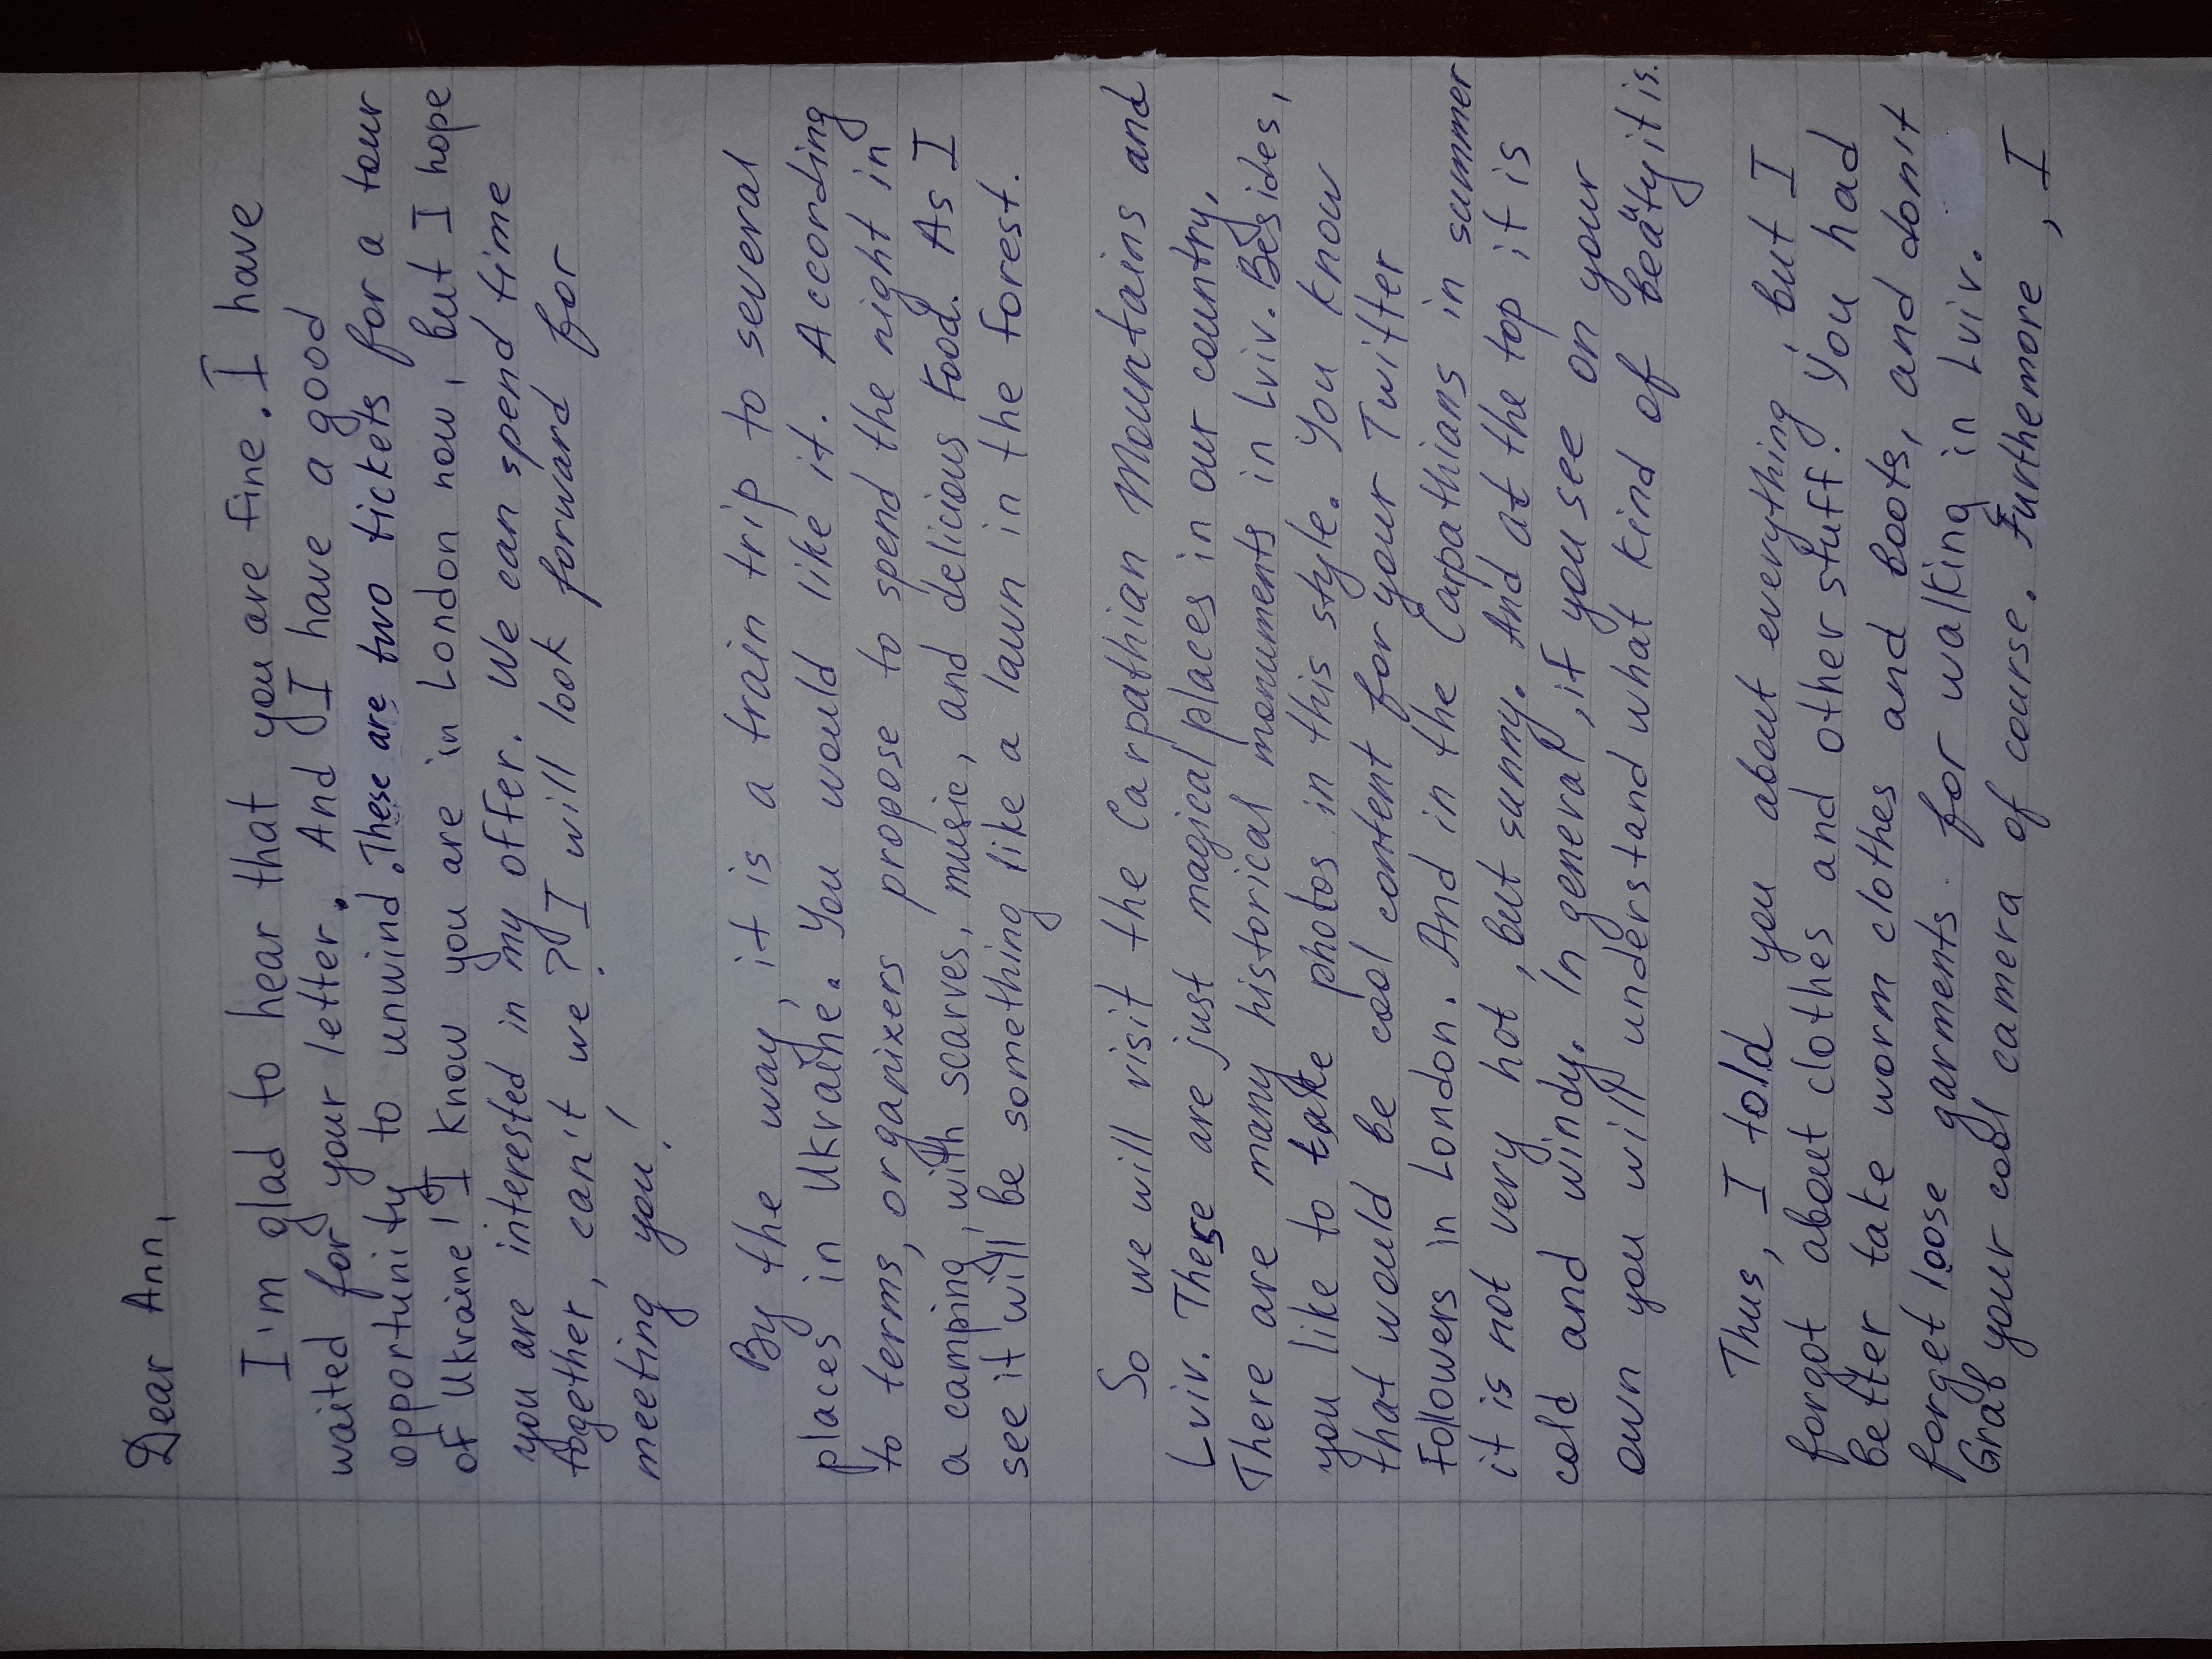 Dear Ann,
I'm glad to hear that you are fine. I have
waited for your letter. And I have a good
opportunity to unwind. These are two tickets for a tour
of Ukraine! I know you are in London now, but I hope
you are interested in my offer. We can spend time
together, can't we? I will look forward for
meeting you!
By the way, it is a train trip to several
places in Ukraine. You would like it. According
to terms, organixers propose to spend the night in
a camping, with scarves, music, and delicious food. As I
see it will be something like a lawn in the forest.
So we will visit the Carpathian Mountains and
Lviv. These are just magical places in our country.
There are many historical monuments in Lviv. Besides,
you like to take photos in this style. You know
that would be cool content for your Twitter
followers in London. And in the Carpathians in summer
it is not very hot, but sunny. And at the top it is
cold and windy. In general, if you see on your
own you will understand what kind of beaty it is.
Thus, I told you about everything, but I
forgot about clothes and other stuff! You had
better take worm clothes and boots, and don't
forget loose garments for walking in Lviv.
Grab your cool camera of course. Furthemore, I